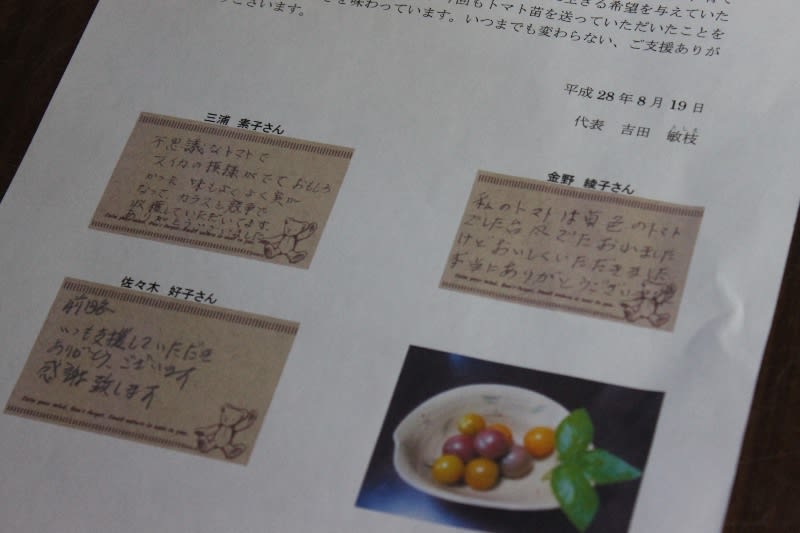 生きる希望を与えていた
今回もトマト苗を送っていただいたことを
を味わっています。いつまでも変わらない、ご支援ありが
ございます。
平成 28 年 8 月 19 日
代表 吉田 敏枝
三浦 素子さん
不思議なトマトで
スイカの模様がでておもしろ
かった 味もよくよく実が
なって カラスと競争で
収穫していただいてます
ありがとうございました
金野 綾子さん
私のトマトは黄色のトマト
でした
けどおいしくいただきました
本当にありがとうござい
佐々木 好子さん
前略
いつも支援していただき
ありがとうございます
感謝致します